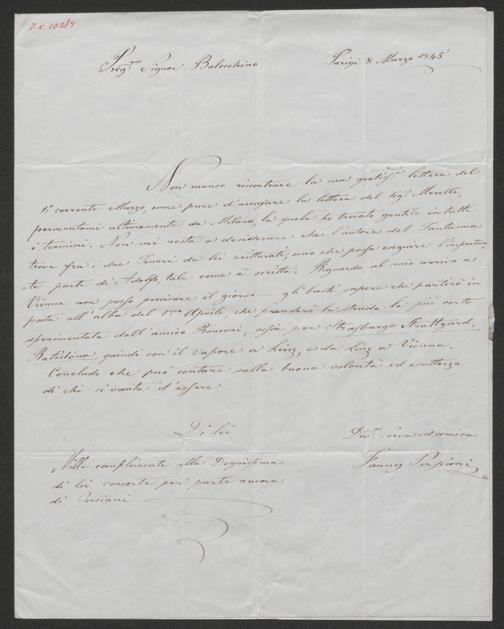 J.N. 10289
Preg.mo Signor Balocchino Parigi 8 Marzo 1845
Non manco riscontrare la sua gratiss.a lettera del
1.o corrente Marzo, come pure d'accusare la lettera del Sig.r Merelli,
pervenutami ultimamente da Milano, la quale ho trovato gentile in tutti
i termini. Non mi resta a desiderare che l'autore del Fantasma
trovi fra i due Tenori da lei scritturati, uno che possa eseguire l'importan-
te parte di Adolfo, tale come è scritta. Riguardo al mio arrivo a
Vienna non posso precisare il giorno gli basti sapere che partirò in
posta all'alba del 1.mo Aprile, che prenderò la strada la più corta
sperimentata dall'amico Ronconi, ossia per Strasburgo Stuttgard,
Ratisbona, quindi con il Vapore a Linz, e da Linz a Vienna.
Concludo che può contare sulla buona volontà ed esattezza
di chi si vanta d'essere
Di lei
Div.ma Serva ed amica
Fanny Persiani
Mille complimenti alla Degnissima
di lei consorte per parte ancora
di Persiani